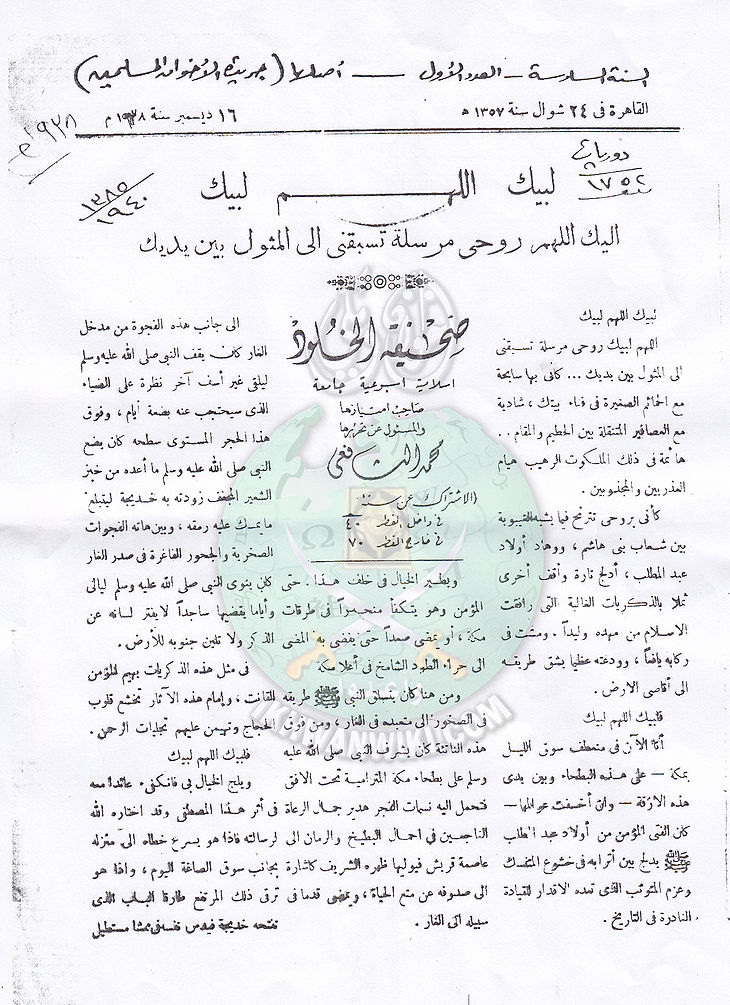 السنة السادسة - العدد الأول - أصلها (جريدة الأخوان المسلمين)
القاهرة فى ٢٤ شوال سنة ١٣٥٧ ه
١٦ ديسمبر سنة ١٩٣٨ م
١٩٣٨ م
دوريات
١٧٥٢
١٣٨٥
١٩٤٠
لبيك اللهم لبيك
اليك اللهم روحى مرسلة تسبقنى الى المثول بين يديك
لبيك اللهم لبيك
اللهم لبيك روحى مرسلة تسبقنى
الى المثول بين يديك ... كأنى بها سابحة
مع الحمائم الصغيرة فى فناء بيتك ، شادية
مع العصافير المتنقلة بين الحطيم والمقام ..
هائمة فى ذلك الملكوت الرهيب هيام
العذريين والمجذوبين .
كأنى بروحى تترنح فيما يشبه الغيبوبة
بين شعاب بنى هاشم ، ووهاد أولاد
عبد المطلب ، أدلج تارة وأقف أخرى
ثملا بالذكريات الغالية التى رافقت
الاسلام من مهده وليداً . ومشت فى
ركابه يافعاً ، وودعته عظيما يشق طريقه
الى أقاصى الارض .
فلبيك اللهم لبيك
أنا الآن فى منعطف سوق الليل
بمكة — على هذه البطحاء وبين يدى
هذه الأزقة — وان أخسفت عوالمها —
كان الفتى المؤمن من أولاد عبد المطلب
ﷺ يدلج بين أترابه فى خشوع المتنسك
وعزم المتوثب الذى تعده الاقدار للقيادة
النادرة فى التاريخ .
صحيفة الخلود
اسلامية اسبوعية جامعة
صاحب امتيازها
والمسئول عن تحريرها
محمد الشافعى
الاشتراك عن سنة
فى داخل القطر ٤٠
فى خارج القطر ٧٠
ويطير الخيال فى خلف هذا . حتى
المؤمن وهو يتكفأ منحدراً فى طرقات
مكة ، او يمضى صعداً حتى يفضى به المضى
الى حراء الطود الشامخ فى أعلا مكة
ومن هنا كان يتسلق النبى ﷺ طريقه
فى الصخور الى متعبده فى الغار ، ومن فوق
هذه الناتئة كان يشرف النبى صلى الله عليه
وسلم على بطحاء مكة المترامية تحت الافق
فتحمل اليه نسمات الفجر هدير جمال الرعاة
الناجعين فى احمال البطيخ والرمان الى
عاصمة قريش فيوليها ظهره الشريف كاشارة
الى صدوفه عن متع الحياة ، ويمضى قدما فى
سبيله الى الغار .
الى جانب هذه الفجوة من مدخل
الغار كان يقف النبى صلى الله عليه وسلم
ليلقى غير آسف آخر نظرة على الضياء
الذى سيحتجب عنه بضعة أيام ، وفوق
هذا الحجر المستوى سطحه كان يضع
النبى صلى الله عليه وسلم ما أعده من خبز
الشعير المجفف زودته به خديجة ليتبلغ
ما يمسك عليه رمقه ، وبين هاته الفجوات
الصخرية والجحور الفاغرة فى صدر الغار
كان ينوى النبى صلى الله عليه وسلم ليالى
وأياما يقضيها ساجداً لا يفتر لسانه عن
الذكر ولا تلين جنوبه للأرض .
فى مثل هذه الذكريات يهيم المؤمن
القانت ، وإمام هذه الآثار تخشع قلوب
الحجاج وتهيمن عليهم تجليات الرحمن .
فلبيك اللهم لبيك
ويلج الخيال بى فانكفىء عائدا معه
فى أثر هذا المصطفى وقد اختاره الله
لرسالته فاذا هو يسرع خطاه الى منزله
بجانب سوق الصاغة اليوم ، واذا هو
ترقى ذلك المرتفع طارقا الباب الذى
تفتحه خديجة فيدس نفسه فى ممشا مستطيل
IKHWANWIKI.COM